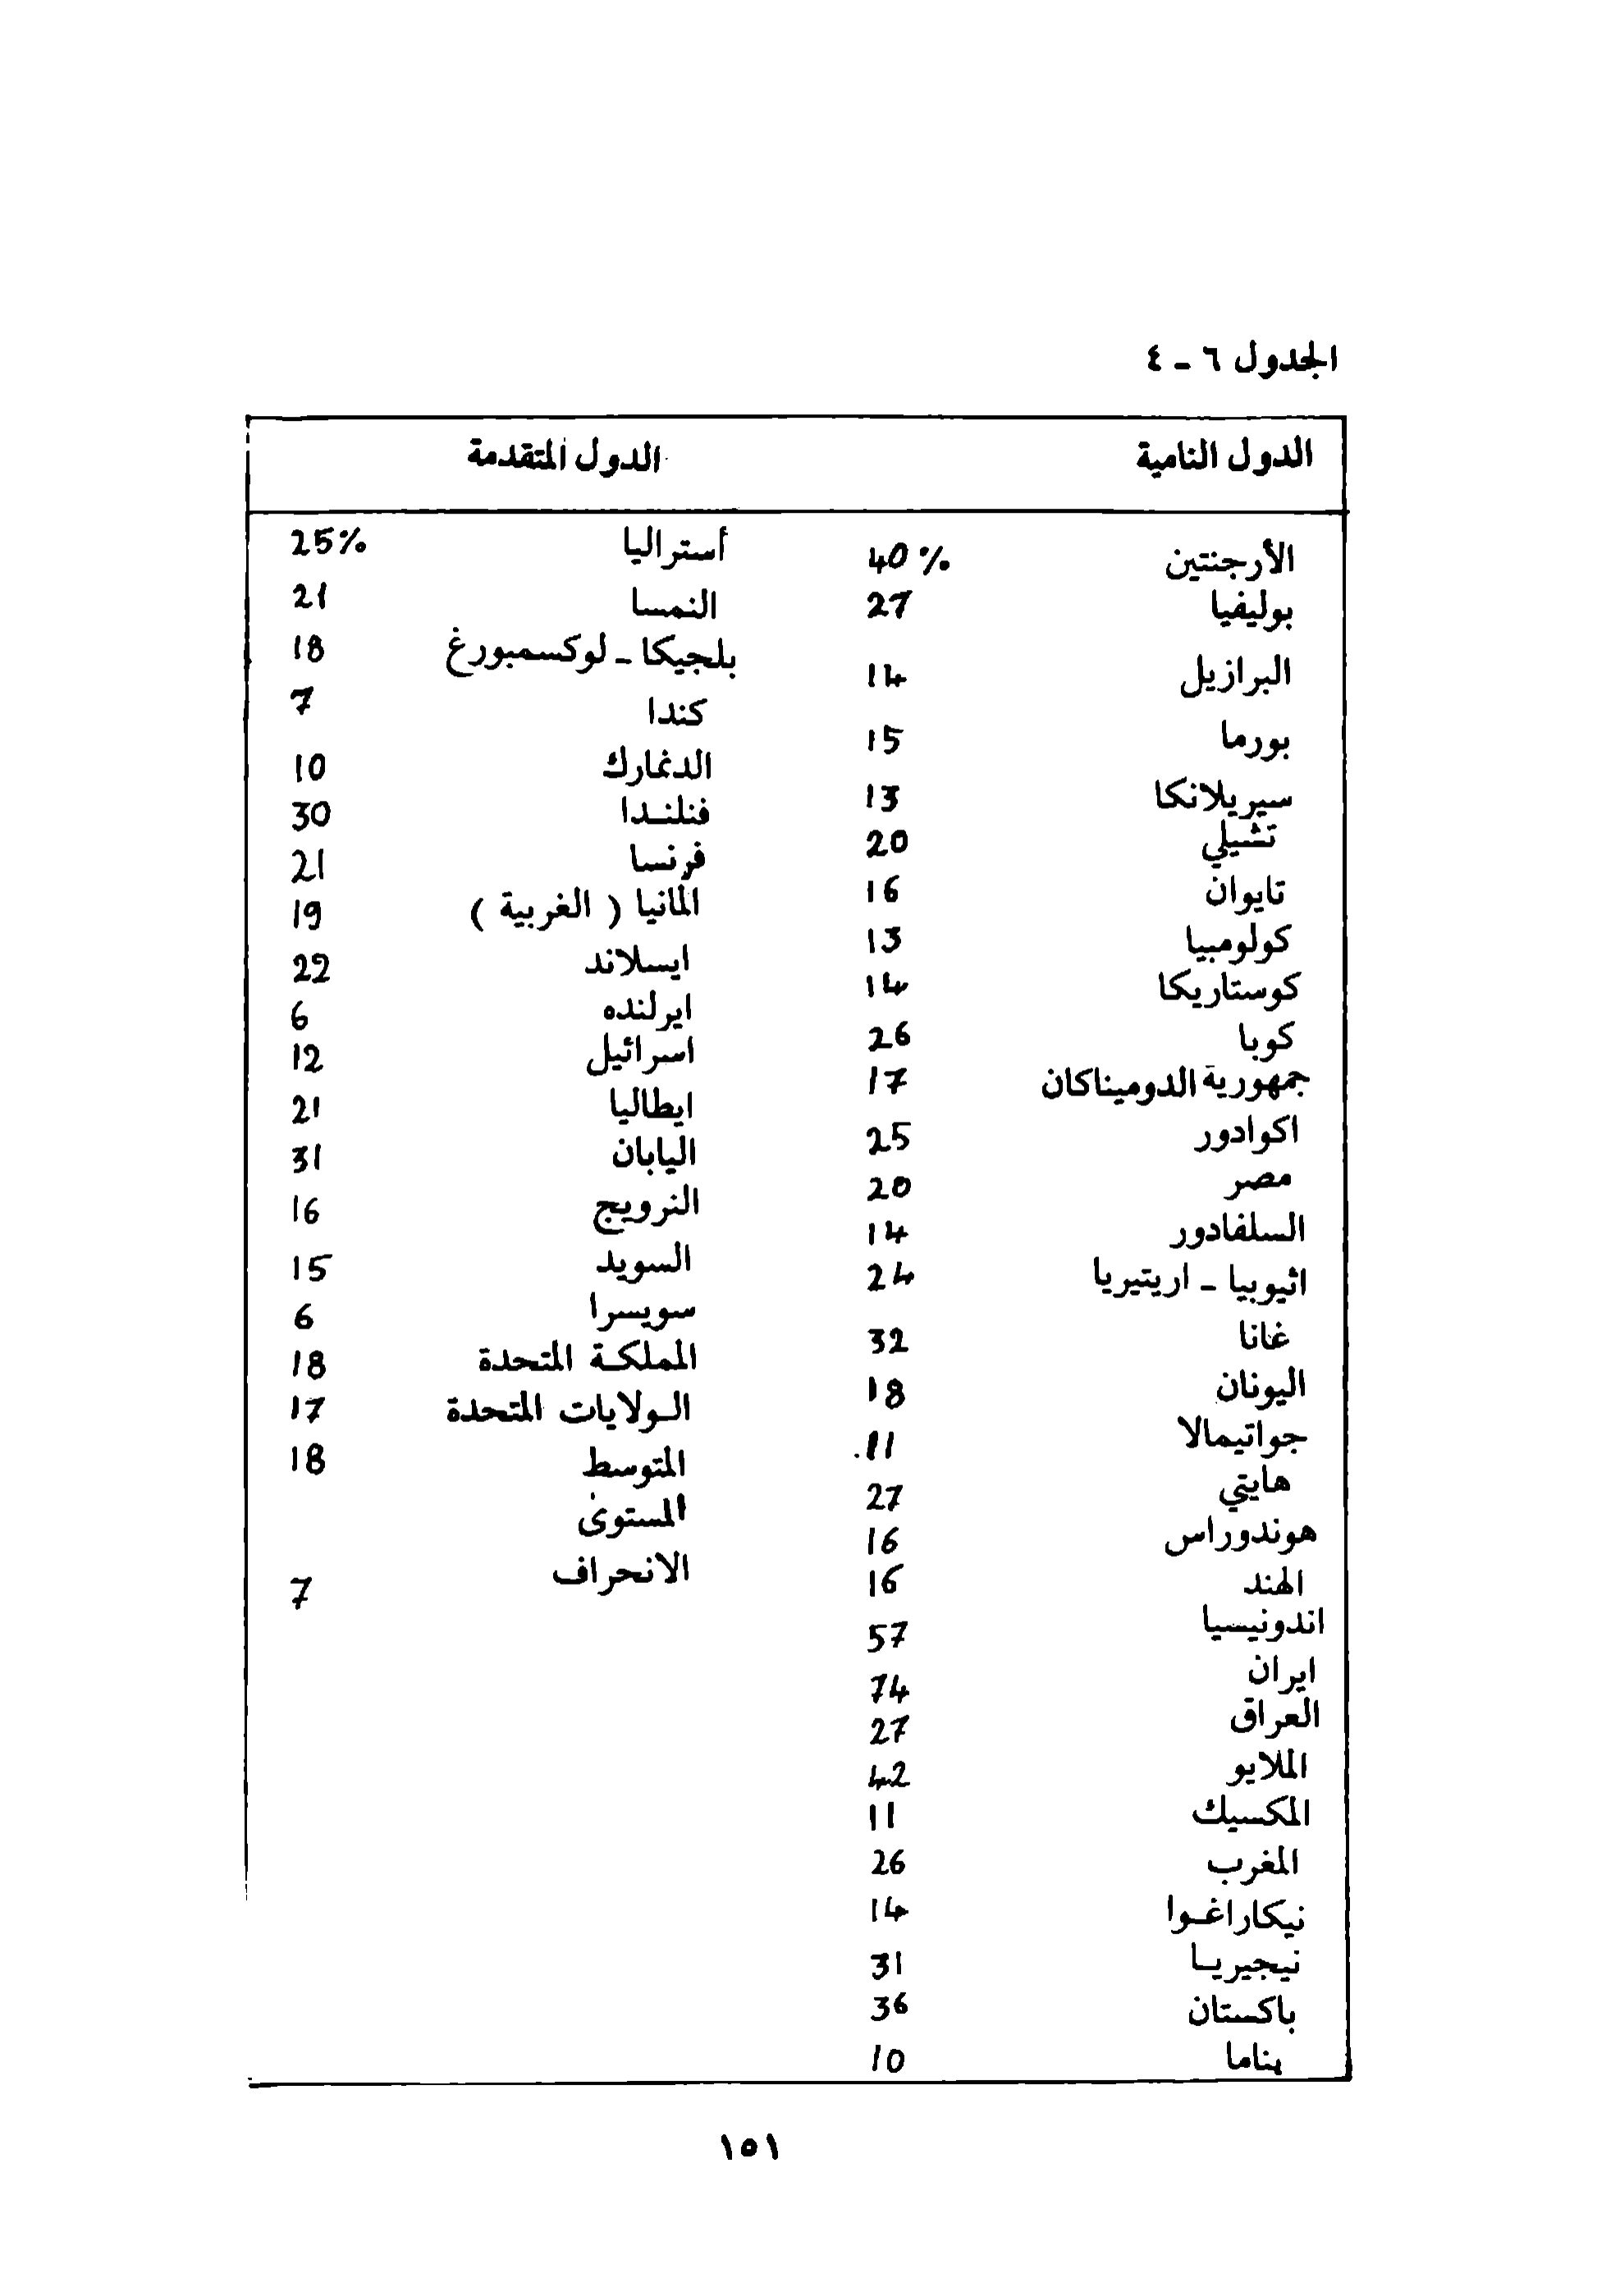 الجدول ٦ - ٤
الدول النامية الدول المتقدمة
الأرجنتين 40% أستراليا 25%
بوليفيا 27 النمسا 21
البرازيل 14 بلجيكا - لوكسمبورغ 18
بورما 15 كندا 7
سيريلانكا 13 الدنمارك 10
تشيلي 20 فنلندا 30
تايوان 16 فرنسا 21
كولومبيا 13 ألمانيا ( الغربية ) 19
كوستاريكا 14 ايسلاند 22
كوبا 26 ايرلنده 6
جمهورية الدوميناكان 17 اسرائيل 12
اكوادور 25 ايطاليا 21
مصر 20 اليابان 31
السلفادور 14 النرويج 16
اثيوبيا - اريتيريا 24 السويد 15
غانا 32 سويسرا 6
اليونان 18 المملكة المتحدة 18
جواتيمالا 11 الولايات المتحدة 17
هايتي 27 المتوسط 18
هوندوراس 16 المستوى
الهند 16 الانحراف 7
اندونيسيا 57
ايران 74
العراق 27
الملايو 42
المكسيك 11
المغرب 26
نيكاراغوا 14
نيجيريا 31
باكستان 36
بناما 10
١٥١